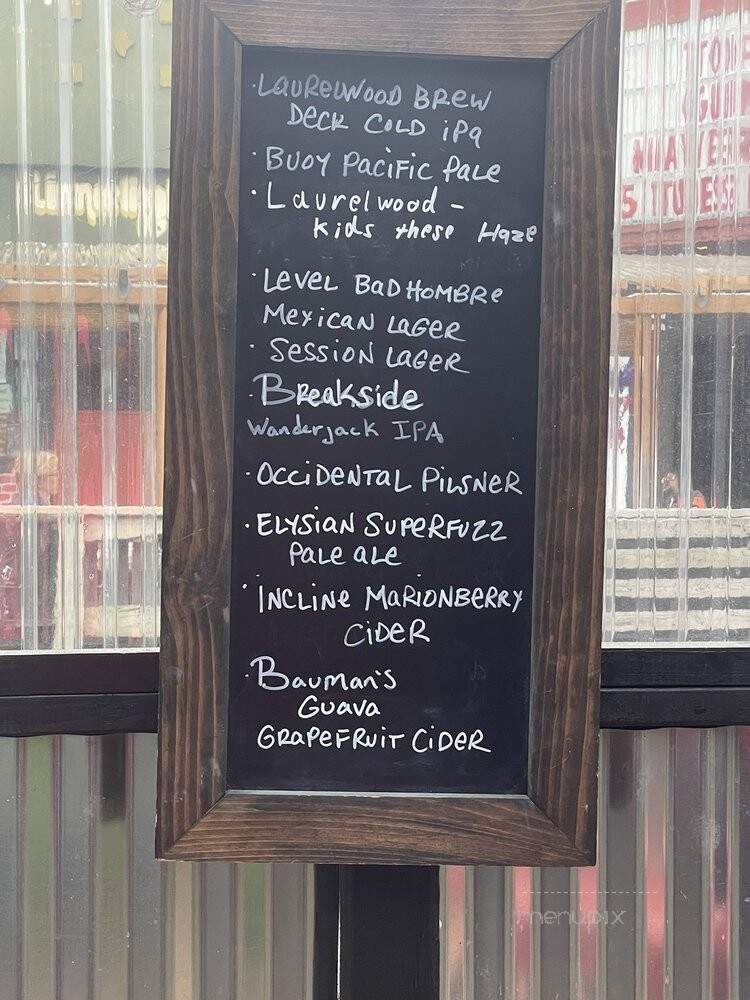 · Laurelwood Brew
Deck Cold iPa
· Buoy Pacific Pale
· Laurelwood -
kids these Haze
· Level Bad Hombre
Mexican Lager
· Session Lager
· Breakside
Wanderjack IPA
· Occidental Pilsner
· Elysian Superfuzz
Pale ale
· Incline Marionberry
Cider
· Bauman's
Guava
Grapefruit Cider
menupix